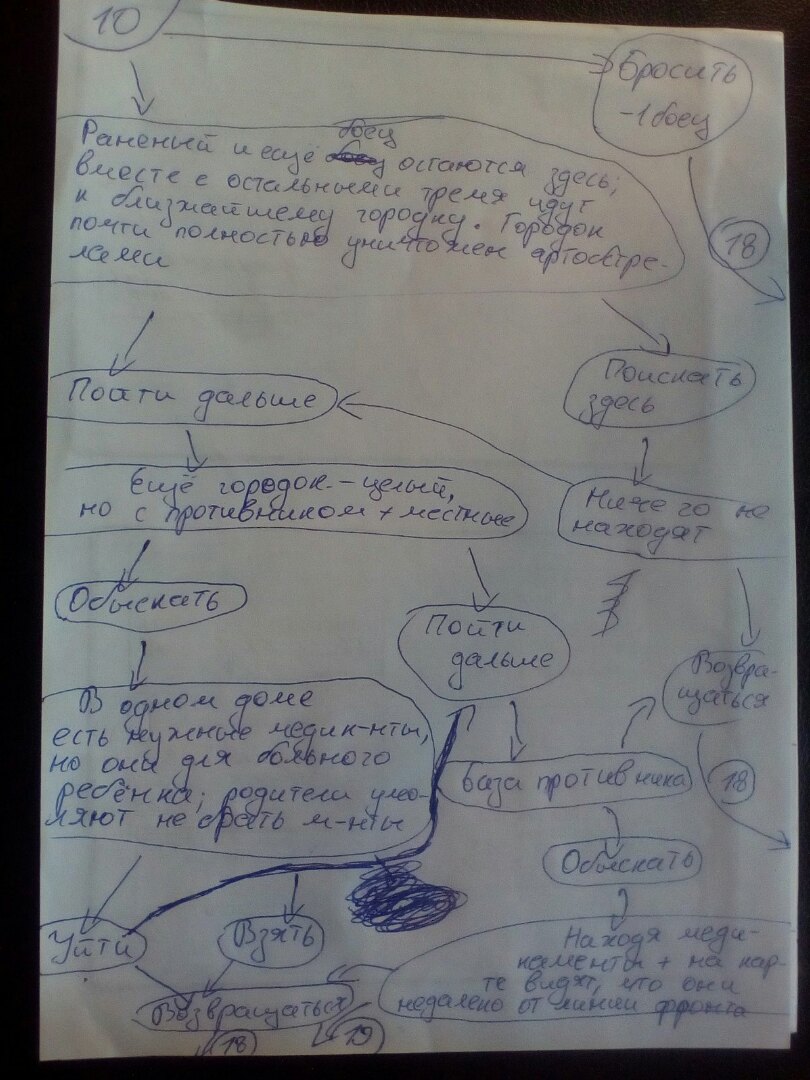 10
Бросить
-1 боец
Раненый и ещё боец остаются здесь;
вместе с остальными тремя идут
к ближайшему городку. Городок
почти полностью уничтожен артобстре-
лами
18
Пойти дальше
Поискать
здесь
Ещё городок - целый,
но с противником + местные
Ничего не
находят
Обыскать
Пойти
дальше
Возвра-
щаться
В одном доме
есть нужные медик-нты,
но они для больного
ребёнка; родители умо-
ляют не брать м-нты
База противника
18
Обыскать
Уйти
Взять
Находя меди-
каменты + на кар-
те видят, что они
недалеко от линии фронта
Возвращаться
18
19